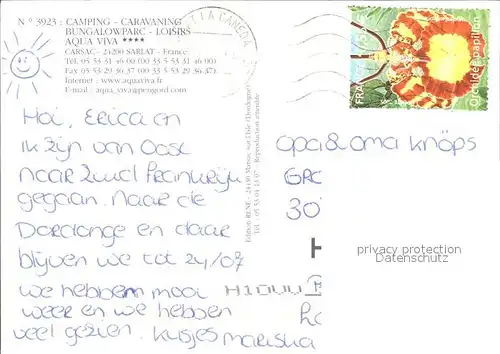 N° 3923 : CAMPING - CARAVANING
BUNGALOWPARC - LOISIRS
AQUA VIVA ****
CARSAC - 24200 SARLAT - France
Tél. 05 53 31 46 00 (00 33 5 53 31 46 00)
Fax 05 53 29 36 37 (00 33 5 53 29 36 37)
Internet : www.aquaviva.fr
E-mail : aqua_viva@perigord.com
LA CANEDA
FRANCE
Orchidée papillon
Hoi, Erica en
ik zijn van Oost
naar Zuid Frankrijk
gegaan. Naar de
Dordonge en daar
blijven we tot 24/07
we hebben mooi
weer en we hebben
veel gezien. Kusjes Mariska
Edition RENE - 24430 Marsac sur l'Isle (Dordogne)
Tél. : 05 53 04 13 97 - Reproduction interdite
opa & oma Knöps
GRO
30
H
privacy protection
Datenschutz